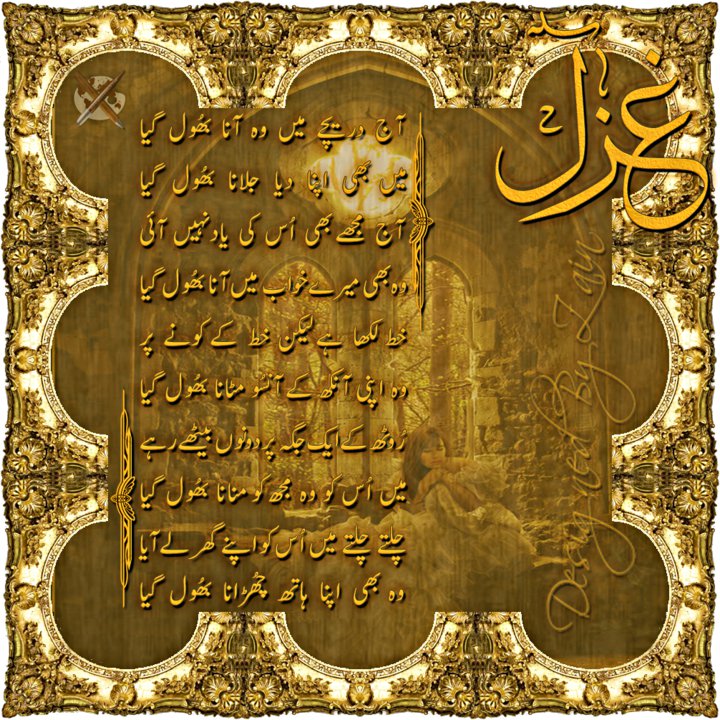 غزل
آج دریچے میں وہ آنا بھُول گیا
میں بھی اپنا دیا جلانا بھُول گیا
آج مجھے بھی اُس کی یاد نہیں آئی
وہ بھی میرے خواب میں آنا بھُول گیا
خط لکھا ہے لیکن خط کے کونے پر
وہ اپنی آنکھ کے آنسُو مٹانا بھُول گیا
رُوٹھ کے ایک جگہ پر دونوں بیٹھے رہے
میں اُس کو وہ مجھ کو منانا بھُول گیا
چلتے چلتے میں اُس کو اپنے گھر لے آیا
وہ بھی اپنا ہاتھ چھُڑانا بھُول گیا
Designed By Zain